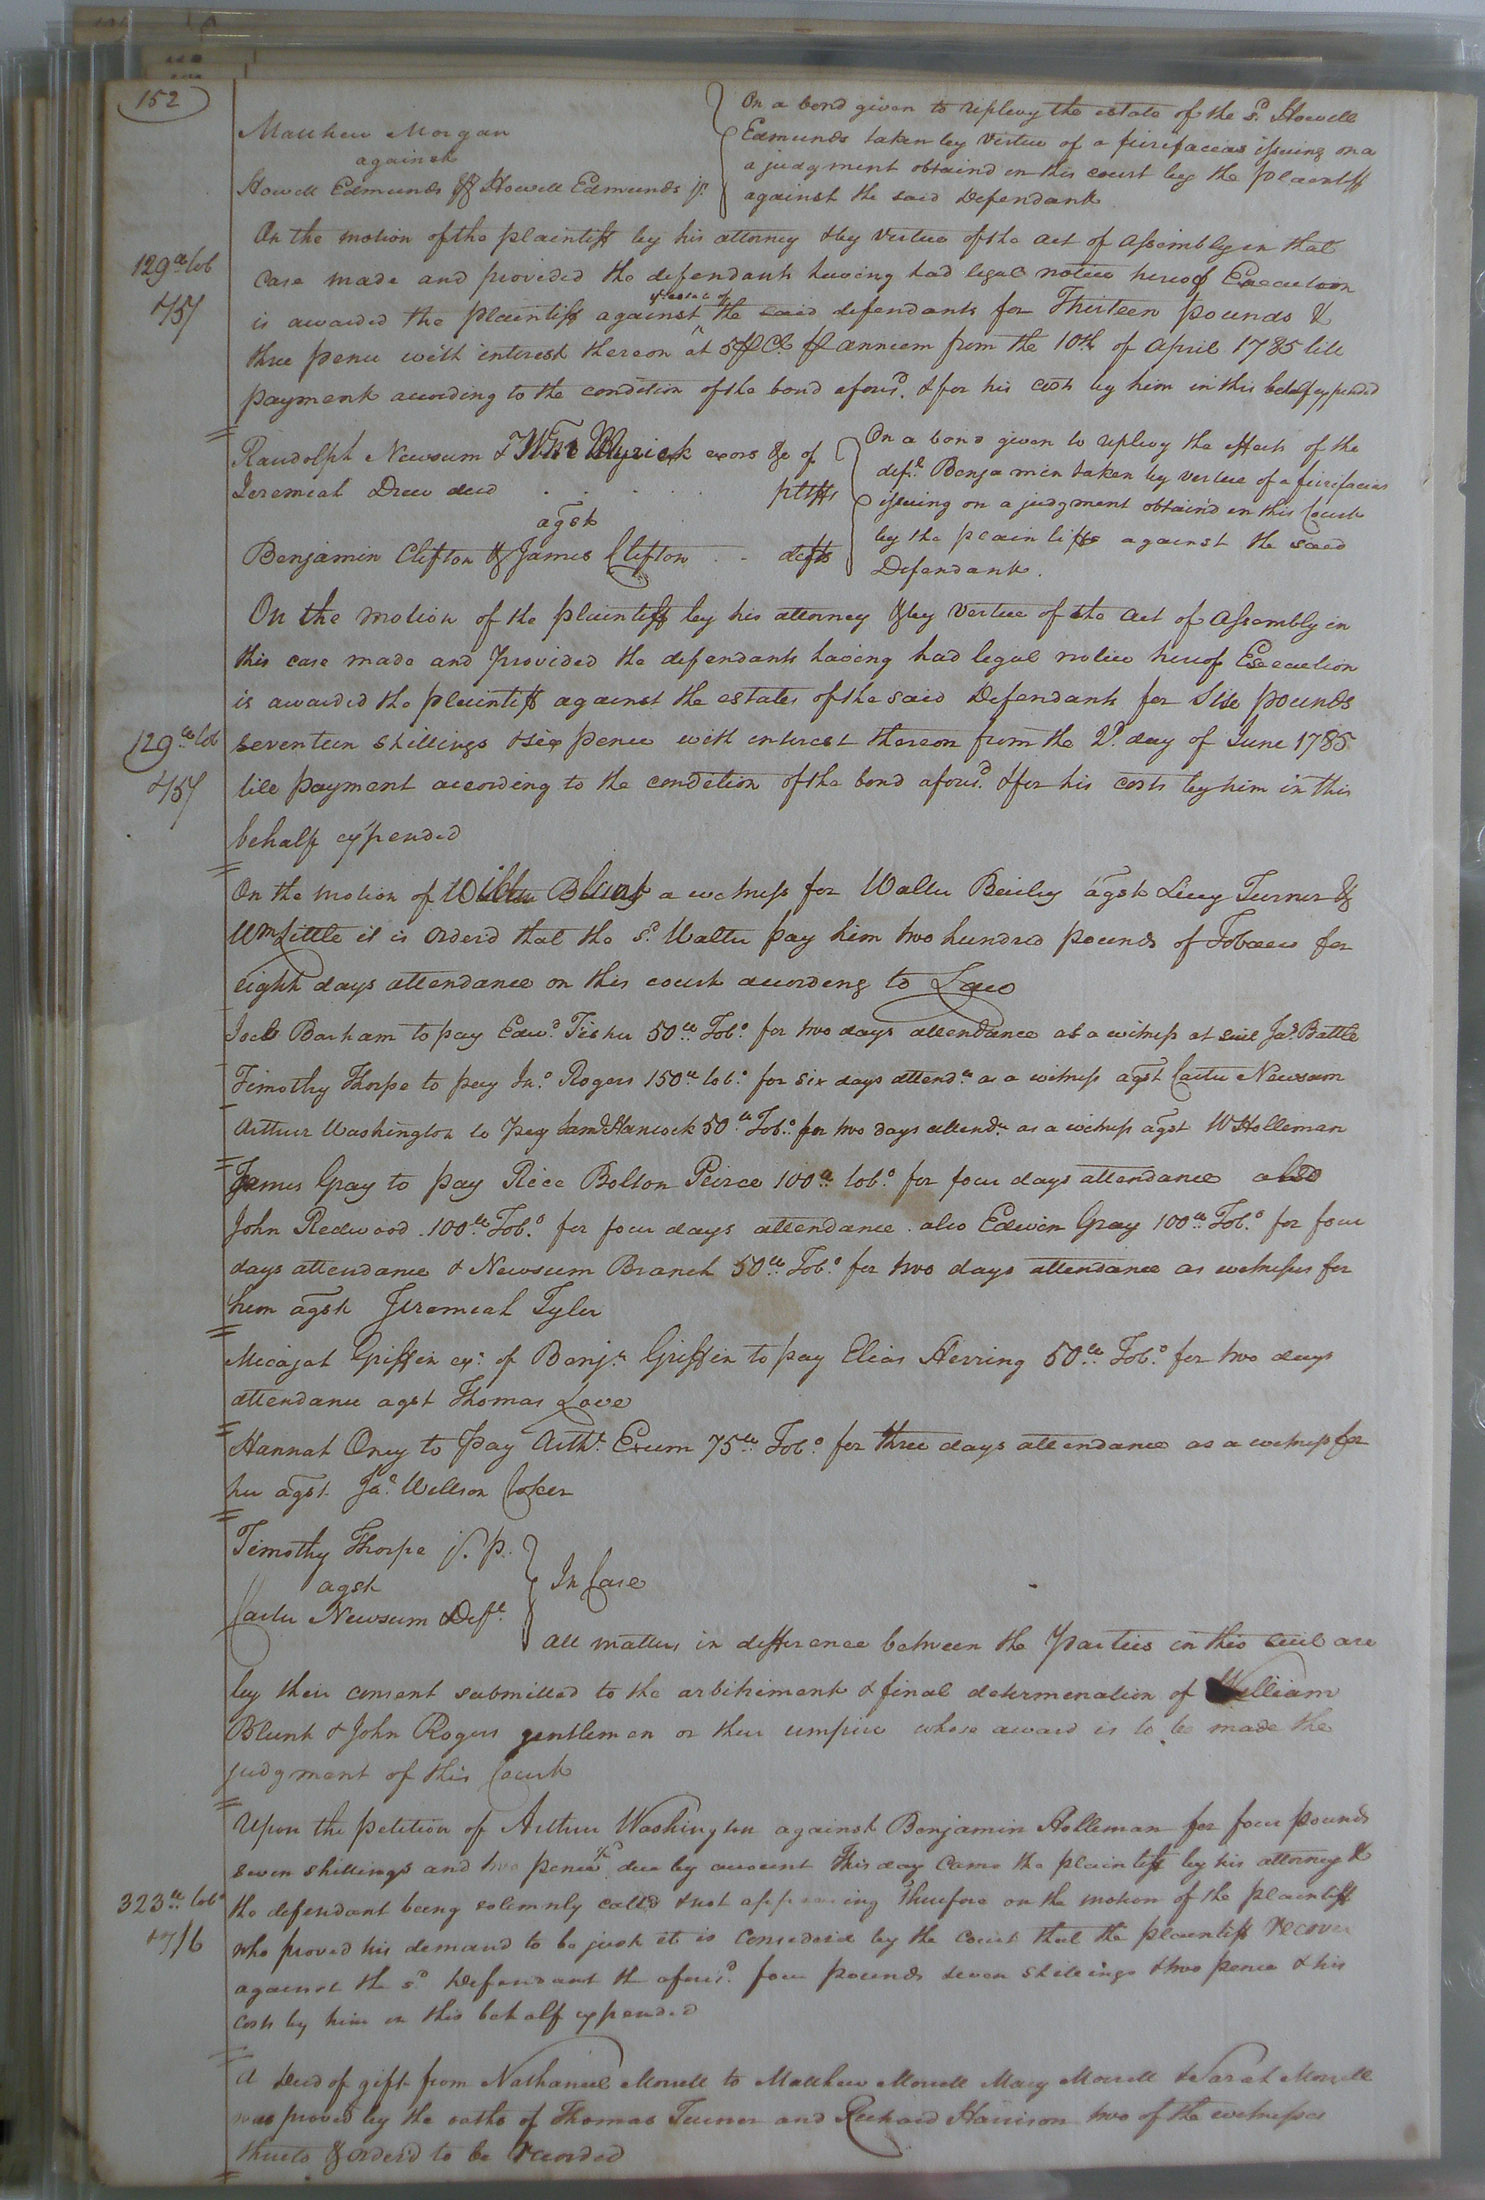 152
Matthew Morgan
against
Howell Edmunds & Howell Edmunds jr.
On a bond given to replevy the estate of the sd. Howell
Edmunds taken by Vertue of a fierifaceas issuing on a
a judgment obtaind in this court by the plaintiff
against the said Defendants
On the motion of the plaintiff by his attorney & by Vertue of the act of assembly in that
129lb tob
&757
Case made and provided the defendants having had legal notice hereof Execution
ye estate of
is awarded the plaintiff against the said defendants for Thirteen pounds &
three pence with interest thereon at 5 pCt. p annum from the 10th of April 1785 till
payment according to the condition of the bond aforesd. & for his costs by him in this behalf expended
Randolph Newsum & Wm Myrick exors &c of
Jeremiah Drew decd . . . . . ptiffs
agst
Benjamin Clifton & James Clifton . . defts
On a bond given to replevy the effects of the
deft. Benjamin taken by vertue of a fierifacias
issuing on a judgment obtain'd in this Court
by the plaintiffs against the said
Defendants.
On the motion of the plaintiff by his attorney & by Vertue of the act of Assembly in
this case made and provided the defendants having had legal notice hereof Execution
is awarded the plaintiff against the estates of the said Defendants for Six pounds
129lb tob
&757
seventeen shillings & six pence with interest thereon from the 2d. day of June 1785
till payment according to the condition of the bond aforesd. & for his costs by him in this
behalf expended
On the motion of Willm Blunt a witness for Walter Bailey agst Lucy Turner &
Wm Little it is Orderd that the sd. Walter pay him two hundred pounds of Tobacco for
eight days attendance on this court according to Law
Joel Barham to pay Edwd. Fisher 50lb. Tobo. for two days attendance as a witness at suit Jas. Battle
Timothy Thorpe to pay Jno. Rogers 150lb tobo. for six days attendce as a witness agst Carter Newsum
Arthur Washington to pay Saml Hancock 50lb. Tobo. for two days attendce as a witness agst W Holleman
James Gray to pay Rice Bolton Peirce 100lb. tobo. for four days attendance also
John Redwood 100lb. Tobo. for four days attendance. also Edwin Gray 100lb. Tobo. for four
days attendance & Newsum Branch 50lb. Tobo. for two days attendance as witnesses for
him agst Jeremiah Tyler
Micajah Griffin exr. of Benjn. Griffin to pay Elias Herring 50lb. Tobo. for two days
attendance agst Thomas Love
Hannah Oney to pay Arthr. Exum 75lb. Tobo. for three days attendance as a witness for
her agst. Jas. Willson Coker
Timothy Thorpe jr. p.
agst
Carter Newsum Deft.
In Case
All matters in difference between the Parties in this suit are
by their consent submitted to the arbitrment & final determination of William
Blunt & John Rogers gentlemen or their umpire whose award is to be made the
judgment of this Court
Upon the petition of Arthur Washington against Benjamin Holleman for four pounds
seven shillings and two pence due by account This day Came the plaintiff by his attorney &
323lb tobo
&7/6
the defendant being solemnly called & not appearing Therefore on the motion of the plaintiff
who proved his demand to be just it is Considerd by the Court that the plaintiff recover
against the sd. Defendant the aforesd. four pounds seven shillings & two pence & his
costs by him in this behalf expended
A Deed of gift from Nathaniel Morrell to Matthew Morrell Mary Morrell & Sarah Morrell
was proved by the oaths of Thomas Turner and Richard Harrison two of the witnesses
thereto & orderd to be recorded